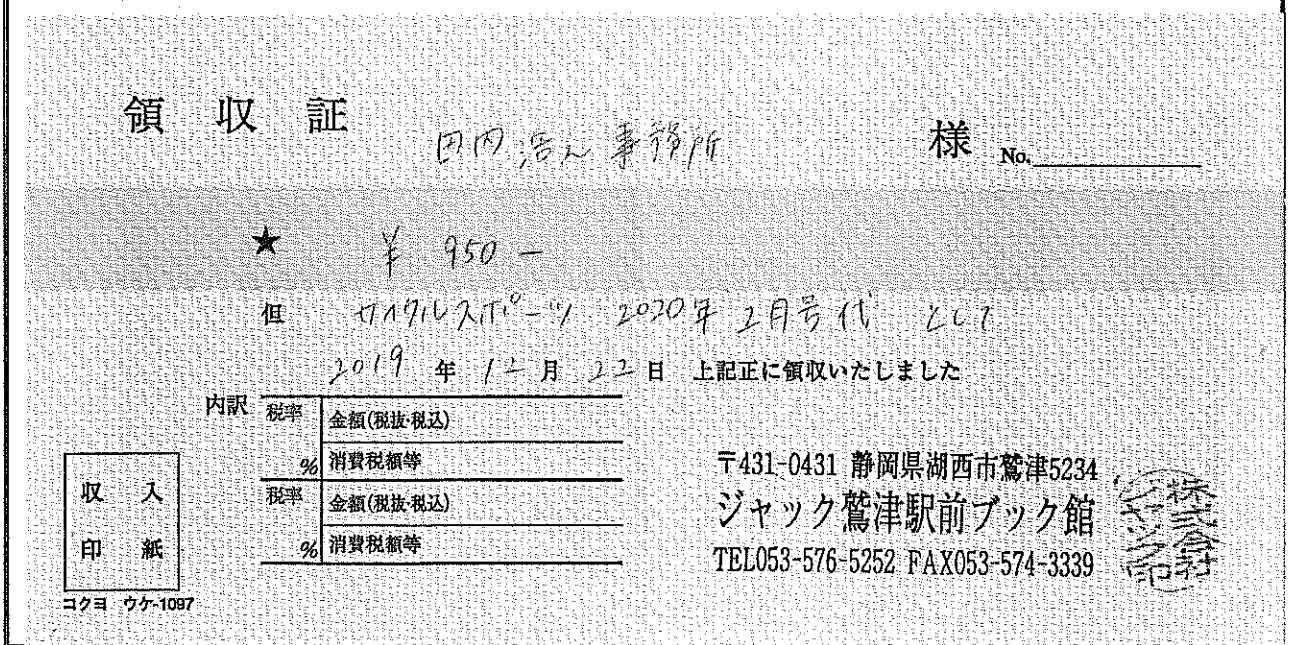 領収証 田内浩之事務所 様 No.
★ ¥ 950 —
但 サイクルスポーツ 2020年 2月号代 として
2019 年 12 月 22 日 上記正に領収いたしました
内訳 税率 金額(税抜・税込)
% 消費税額等
税率 金額(税抜・税込)
% 消費税額等
収入
印紙
コクヨ ウケ-1097
〒431-0431 静岡県湖西市鷲津5234
ジャック鷲津駅前ブック館
TEL053-576-5252 FAX053-574-3339
株式会社
ジャック印